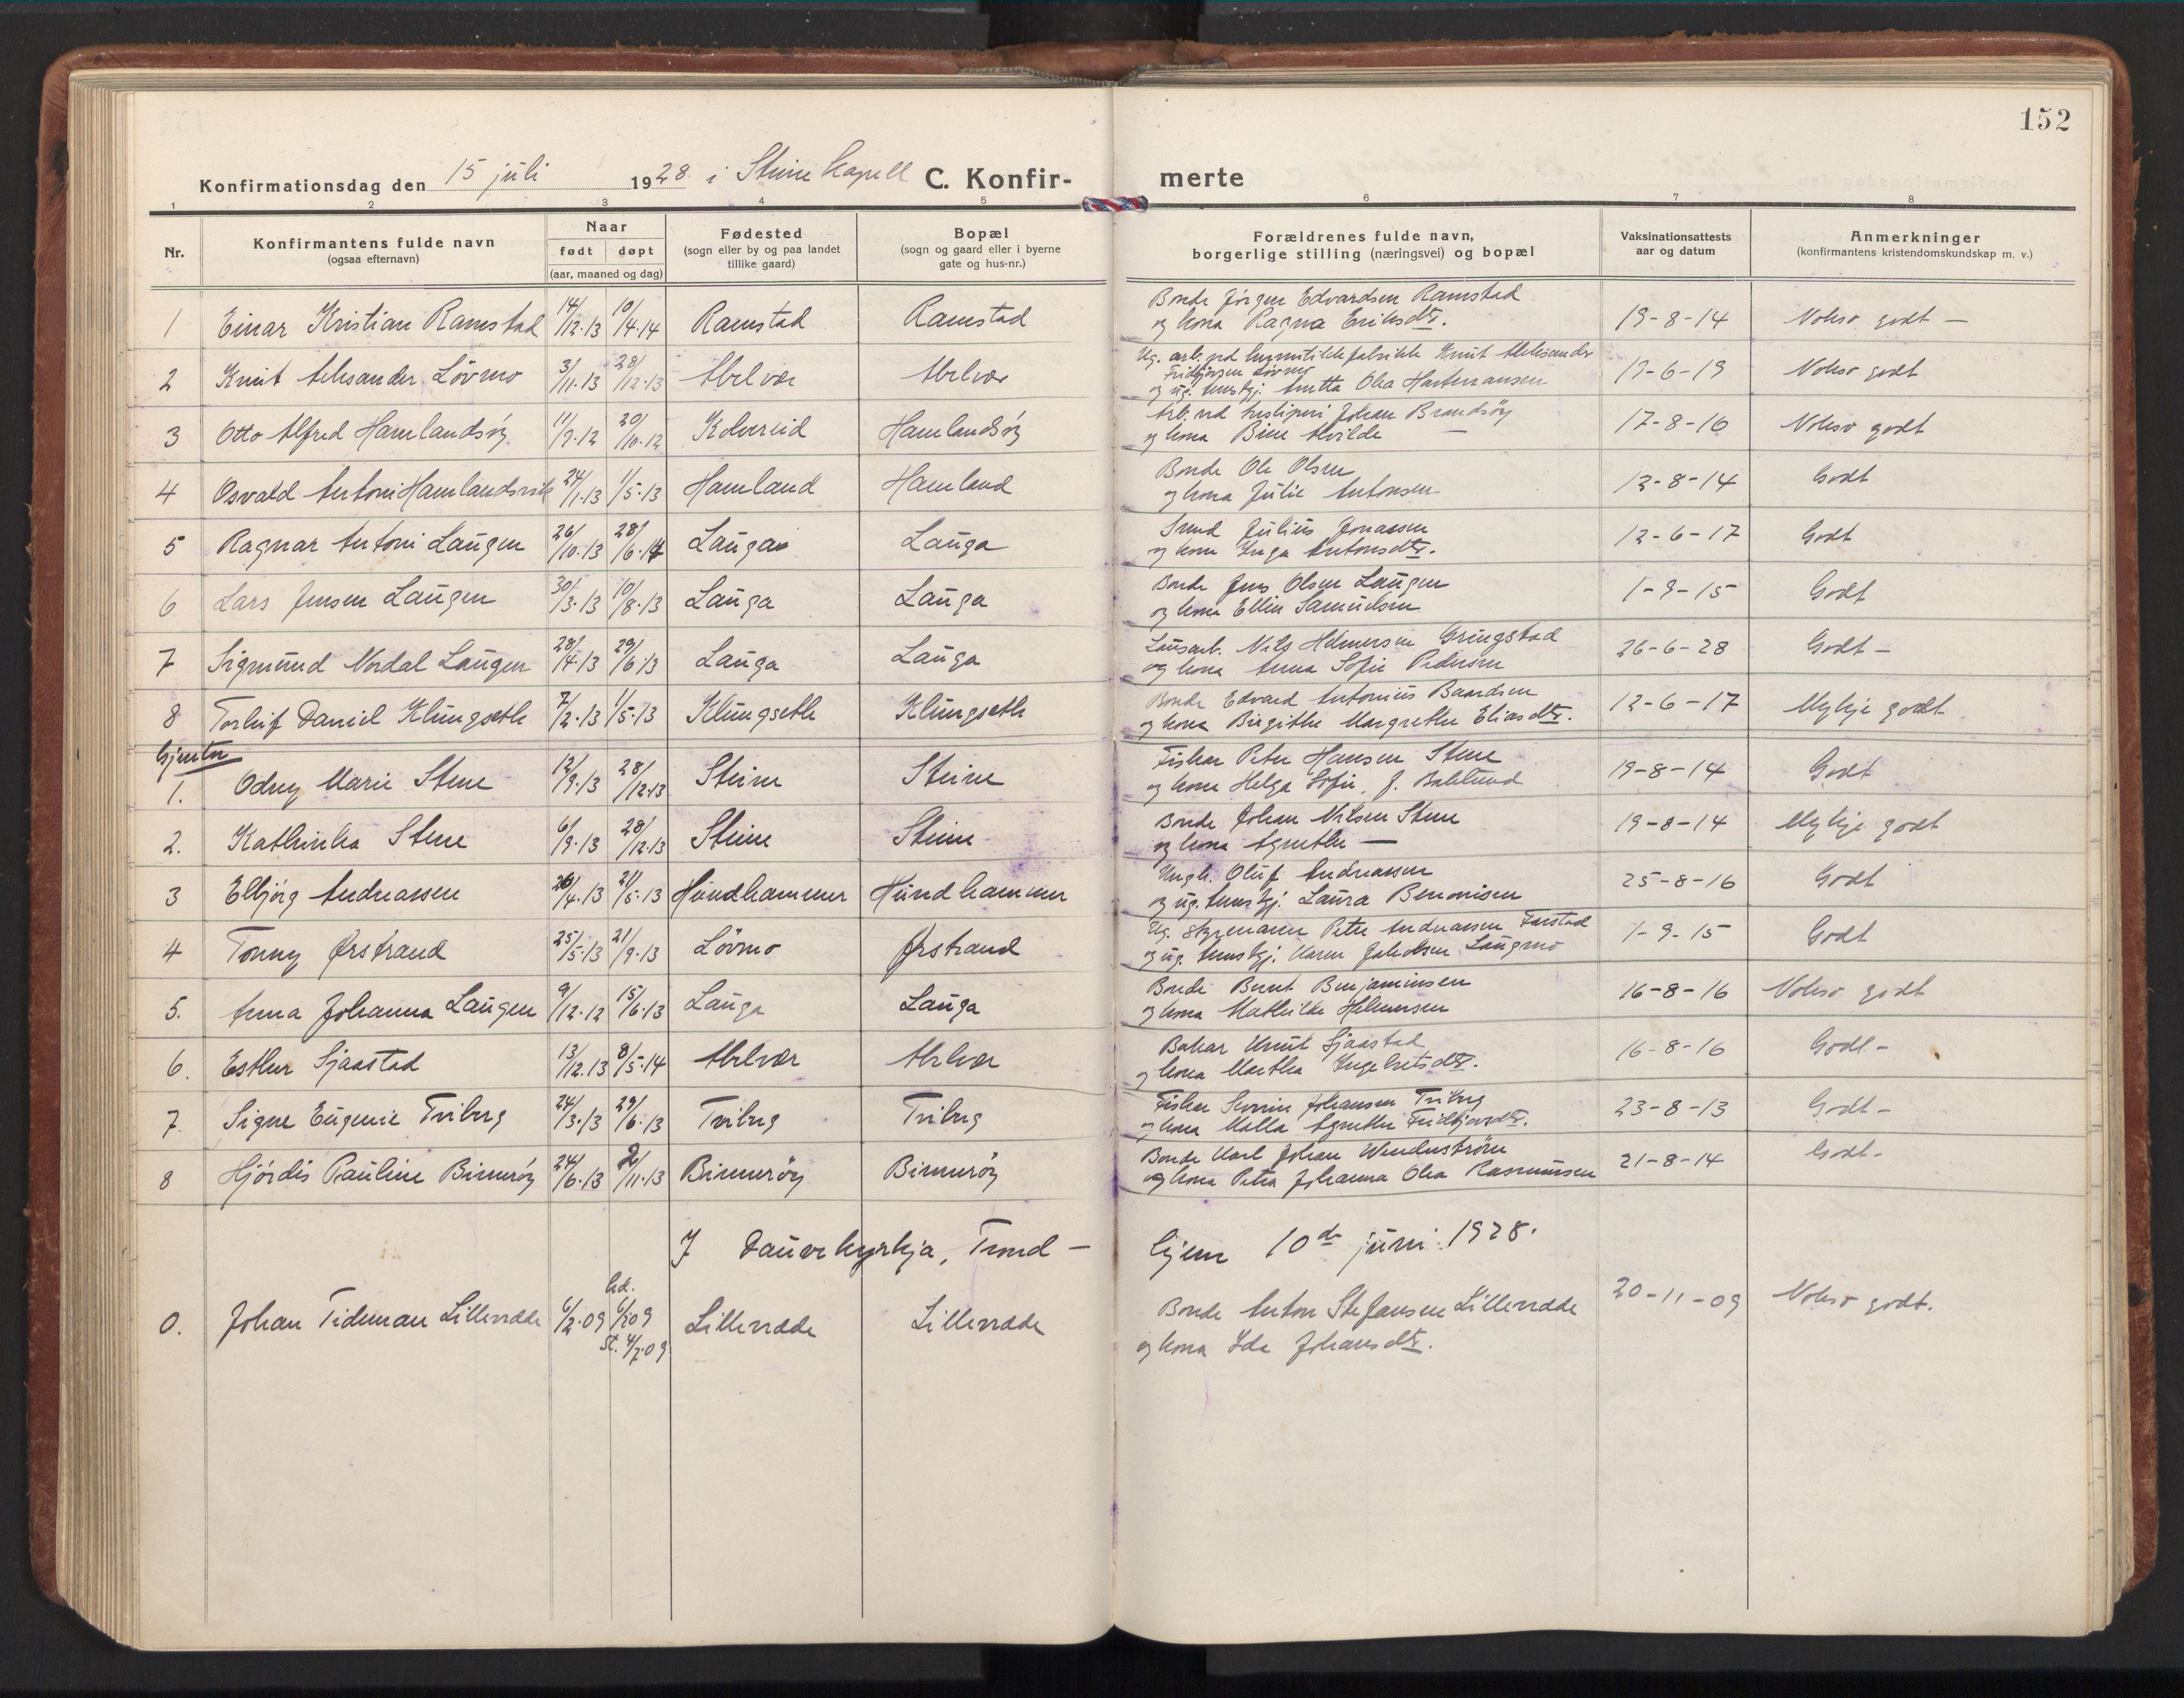 152
Konfirmationsdag den 15 juli 1928 i Steine kapell C. Konfirmerte
1 2 3 4 5 6 7 8
Nr. Konfirmantens fulde navn (ogsaa efternavn) Naar født døpt (aar, maaned og dag) Fødested (sogn eller by og paa landet tillike gaard) Bopæl (sogn og gaard eller i byerne gate og hus-nr.) Forældrenes fulde navn, borgerlige stilling (næringsvei) og bopæl Vaksinationsattests aar og datum Anmerkninger (konfirmantens kristendomskundskap m. v.)
1 Einar Kristian Ramstad 14/12.13 10/4.14 Ramstad Ramstad Bonde Jörgen Edvardsen Ramstad
og kona Ragna Eriksdtr. 19-8-14 Nokso godt —
2 Knut Aleksander Lövmo 3/11.13 28/12.13 Abelvær Abelvær Ug. arb. ved Knut Aleksander
Fridtjofsen Lövmo
og ug. tenstgj. Olea 19-6-19 Nokso godt
3 Otto Alfred Hamlandsöy 11/9.12 20/10.12 Kolvereid Hamlandsöy Arb. ved Johan Brandsöy
og kona Bine Alvilde — 17-8-16 Nokso godt
4 Osvald Antoni Hamlandsvik 24/1.13 1/5.13 Hamland Hamland Bonde Ole Olsen
og kona Julie Antonsen 12-8-14 Godt
5 Ragnar Antoni Laugen 26/10.13 28/6.14 Lauga Lauga Smed Julius Jonassen
og kona Inga Antonsdtr. 12-6-17 Godt
6 Lars Jensen Laugen 30/3.13 10/8.13 Lauga Lauga Bonde Jens Olsen Laugen
og kona Ellen Samuelsen 1-9-15 Godt
7 Sigmund Nordal Laugen 28/4.13 29/6.13 Lauga Lauga Lausarb. Nils Helmersen Gringstad
og kona Anna Sofie Pedersen 26-6-28 Godt —
8 Torleif Daniel Klungseth 7/2.13 1/5.13 Klungseth Klungseth Bonde Edvard Antonius Baardsen
og kona Birgitte Margrethe Eliasdtr. 12-6-17 Mykje godt
Gjentor
1. Odny Marie Stene 12/9.13 28/12.13 Steine Steine Fiskar Peter Hansen Stene
og kona Helga Sofie, f. Baklund 19-8-14 Godt
2. Kathinka Stene 6/9.13 28/12.13 Steine Steine Bonde Johan Nilsen Stene
og kona Agnethe — 19-8-14 Mykje godt
3 Elbjörg Andreassen 26/4.13 21/5.13 Hundhammer Hundhammer Ungk. Oluf Andreassen
og ug. tenstgj. Laura Benonisen 25-8-16 Godt
4 Tonny Ørstrand 25/5.13 21/9.13 Lövmo Ørstrand Ug. styrmann Peter Andreassen
og ug. tenstgj. Karen Jakobsen Laugmo 1-9-15 Godt
5. Anna Johanna Laugen 9/12.12 15/6.13 Lauga Lauga Bonde Bernt Benjaminsen
og kona Mathilde Helmersen 16-8-16 Nokso godt
6. Esther Sjaastad 13/12.13 8/5.14 Abelvær Abelvær Bakar Knut Sjaastad
og kona Martha Ingebretsdtr. 16-8-16 Godt —
7. Signe Eugenie Tviberg 24/3.13 29/6.13 Tviberg Tviberg Fiskar Severin Johansen Tviberg
og kona Malla Agnethe Fridtjofsdtr. 23-8-13 Godt —
8 Hjördis Pauline Binneröy 24/6.13 2/11.13 Binneröy Binneröy Bonde Karl Johan Wenderström
og kona Petra Johanna Olea Rasmussen 21-8-14 Godt —
I Dauvekyrkja, Trondhjem 10de juni 1928.
0. Johan Tideman Lillevedde 6/2.09 hd. 6/2 09 St. 4/7.09 Lillevedde Lillevedde Bonde Anton Stefansen Lillevedde
og kona Ida Johansdtr. 20-11-09 Nokso godt.